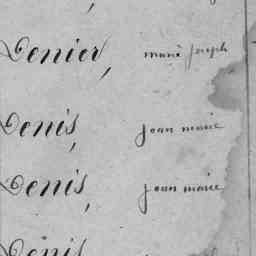 Denier, marie joseph
Denis, jean marie
Denis, jean marie
Denis